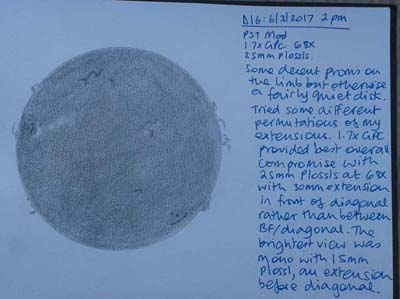 D16: 6/3/2017 2pm
PST Mod
1.7x GPC 68x
25mm Plossls.
Some decent proms on
the limb but otherwise
a fairly quiet disk.
Tried some different
permutations of my
extensions. 1.7x GPC
provided best overall
compromise with
25mm Plossls at 68x
with 30mm extension
in front of diagonal
rather than between
BF/diagonal. The
brightest view was
mono with 15mm
Plossl, an extension
before diagonal.